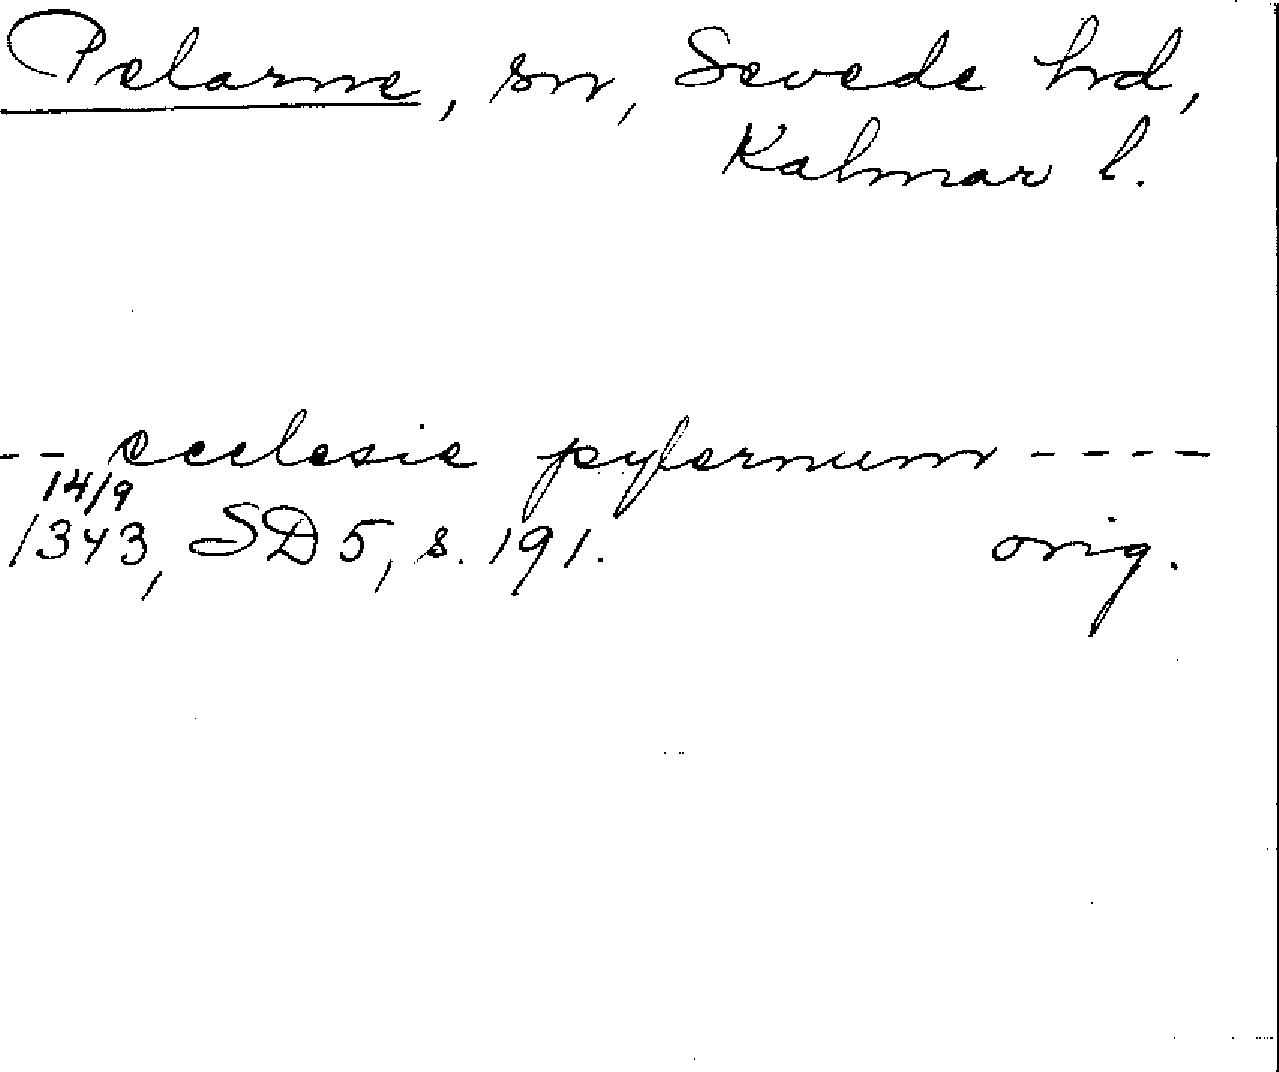 Pelarne, sn, Sevede hd,
Kalmar l.
-- ecclesie pylernum ----
14/9
1343, SD 5, s. 191. orig.